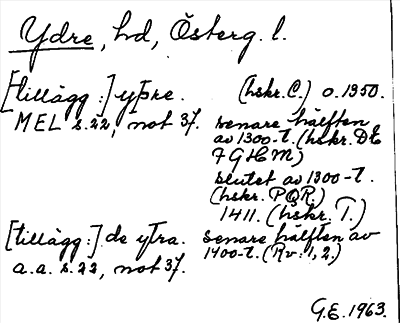 Ydre, hd, Österg. l.
[tillägg:] yþre. (hskr. C.) o. 1350.
MEL s. 22, not 37. senare hälften
av 1300-t. (hskr. DE
FGHM)
slutet av 1300-t.
(hskr. PQR.)
1411. (hskr. T.)
[tillägg:] de yþra. senare hälften av
a.a. s. 22, not 37. 1400-t. (Rv: 1, 2.)
G.E. 1963.